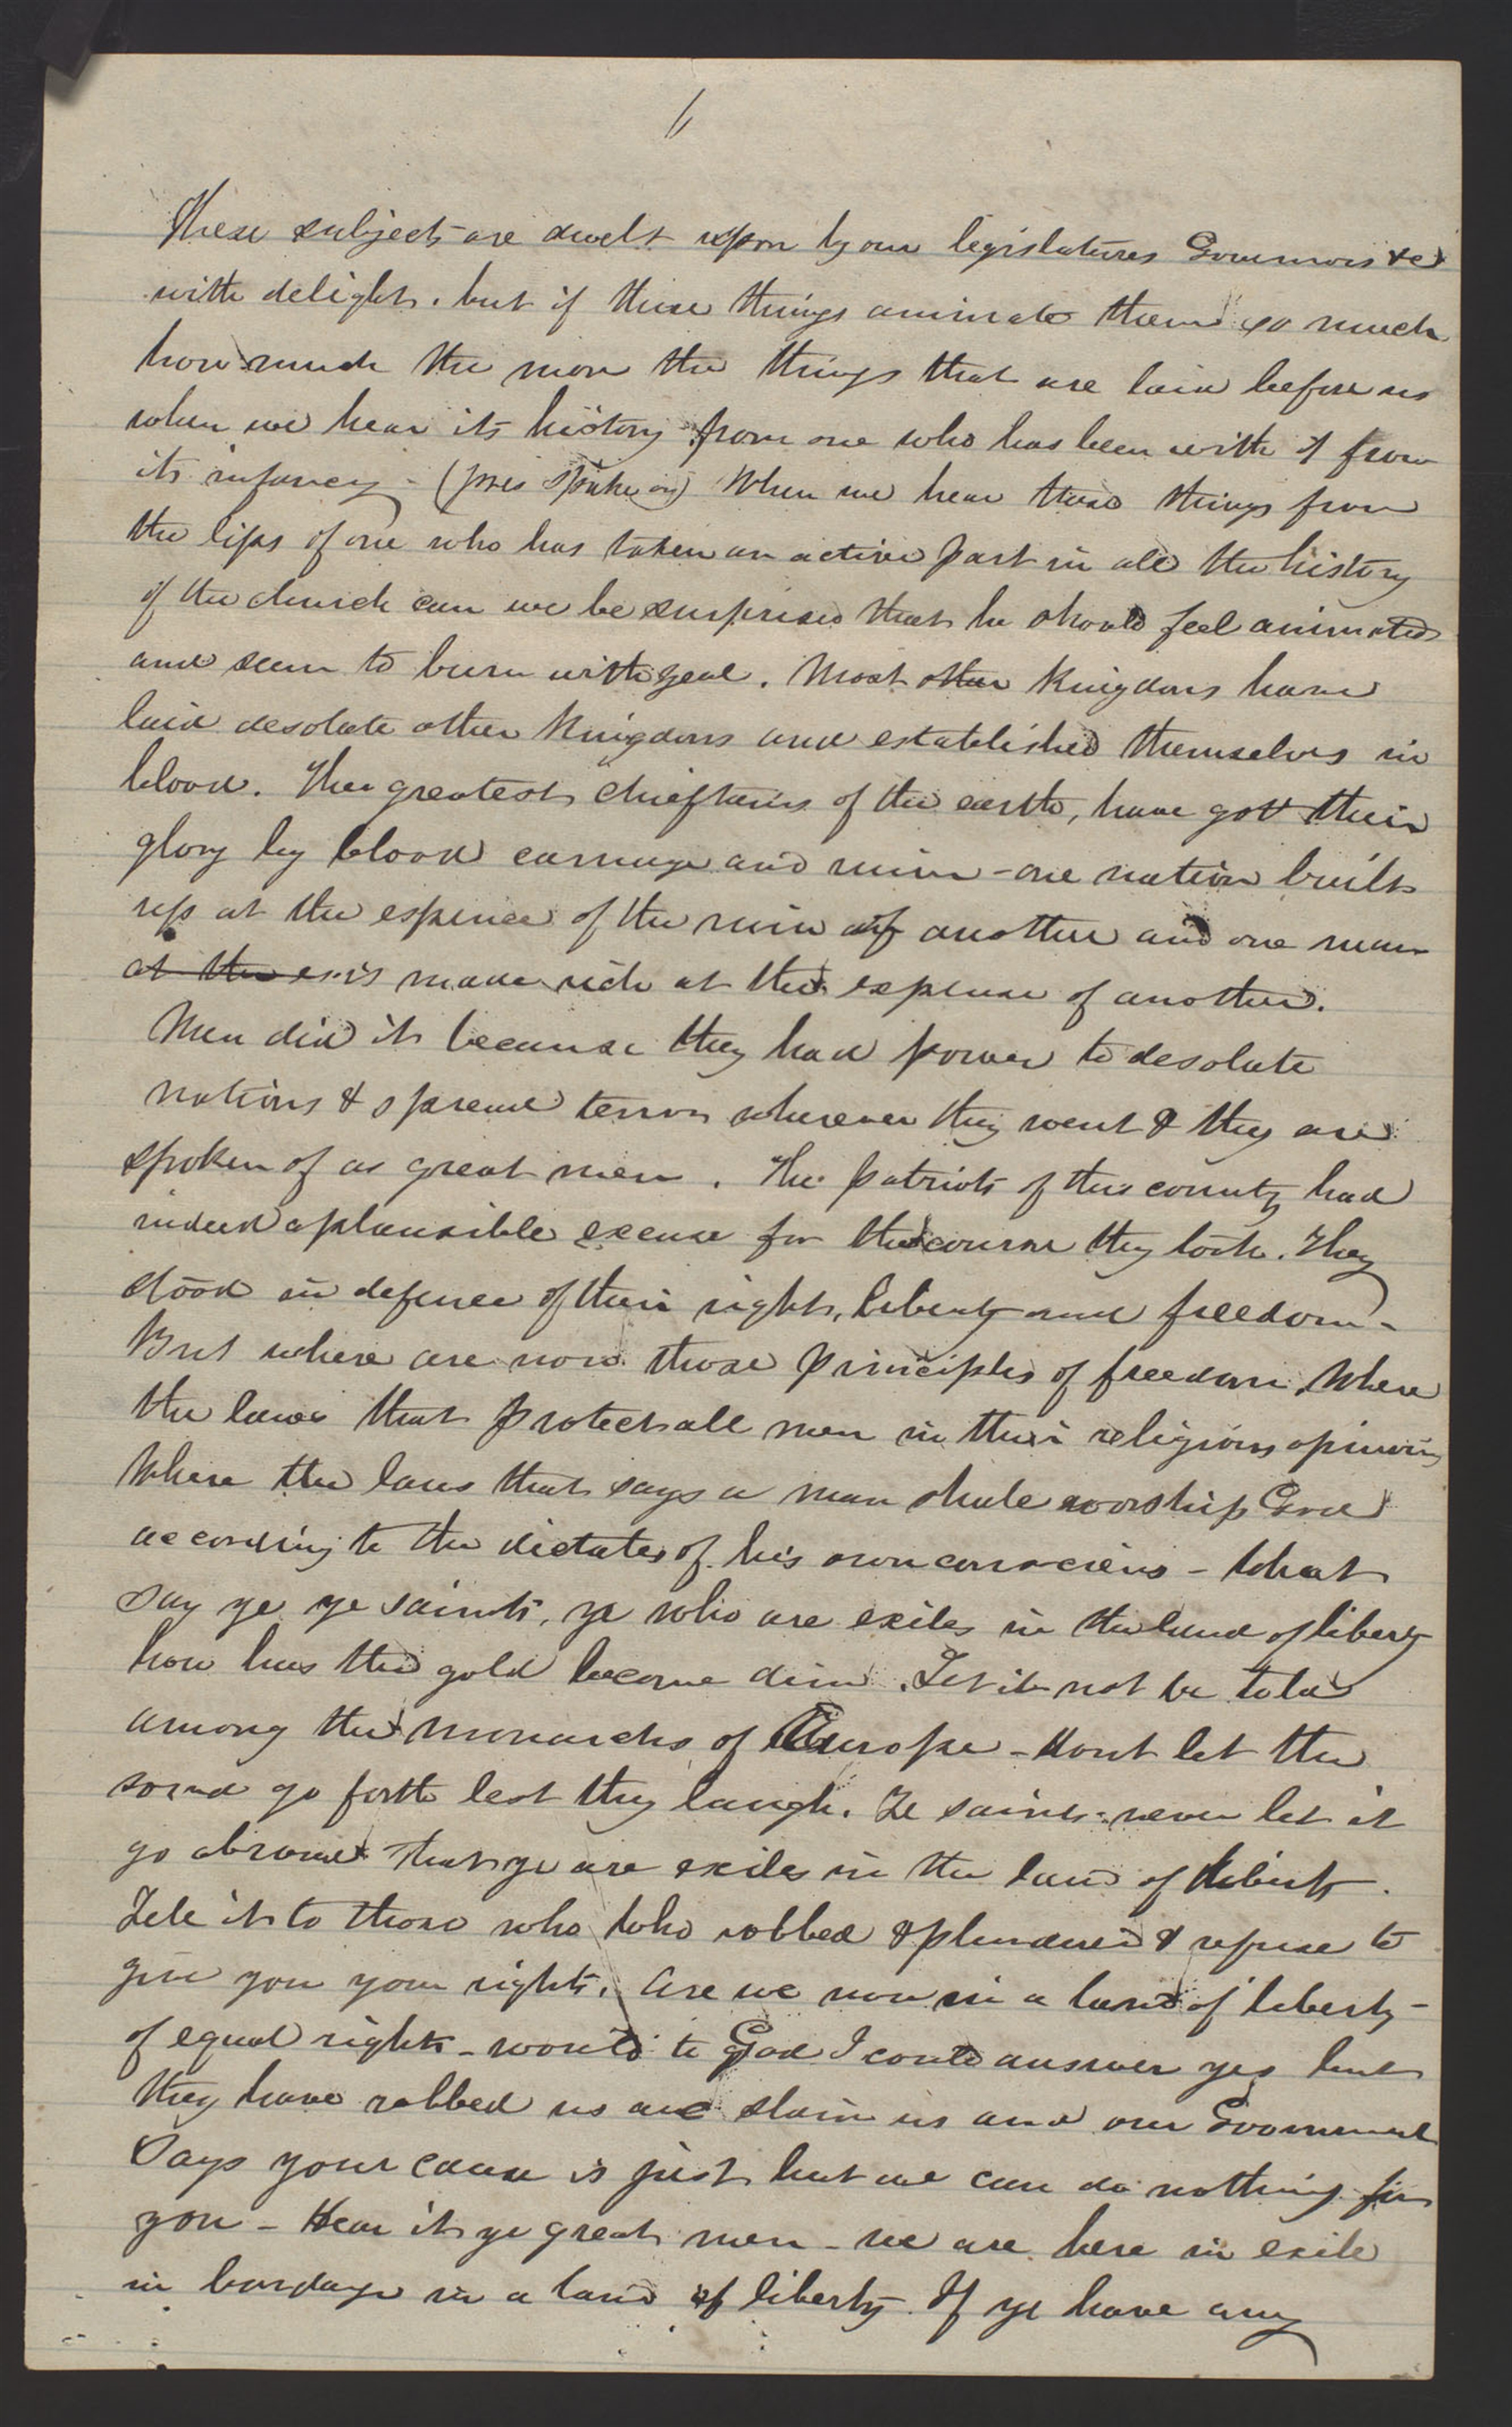 6
These subjects are dwelt upon by our legislatures Governors &c
with delight. but if these things animate them so much
how much the more the things that are laid before us
when we hear its history from one who has been with it from
its infancy - (pres Rigdon) When we hear these things from
the lips of one who has taken an active part in all the history
of the church can we be surprised that he should feel animated
and seem to burn with zeal. Most other Kingdoms have
laid desolate other Kingdoms and established themselves in
blood. The greatest chieftains of the earth, have got their
glory by blood carnage and ruin - one nation built
up at the expence of the ruin of another and one man
at the ex is made rich at the expense of another.
Men did it because they had power to desolate
nations & spread terror wherever they went & they are
spoken of as great men. The patriots of this country had
indeed a plausible excuse for the course they took. They
stood in defence of their rights, liberty and freedom -
But where are now those principles of freedom, Where
the laws that protect all men in their religious opinions
Where the laws that says a man shall worship God
according to the dictates of his own conscience - What
say ye ye saints, ye who are exiles in the land of liberty
how has the gold become dim. Let it not be told
among the monarchs of Europe - dont let the
sound go forth lest they laugh. Ye saints never let it
go abroad that ye are exiles in the land of liberty.
Tell it to those who who robbed & plundered & refuse to
give you your rights. Are we now in a land of liberty -
of equal rights - would to God I could answer yes but
they have robbed us and slain us and our Government
Says your cause is just but we can do nothing for
you - Hear it ye great men - we are here in exile
in bondage in a land of liberty. If ye have any